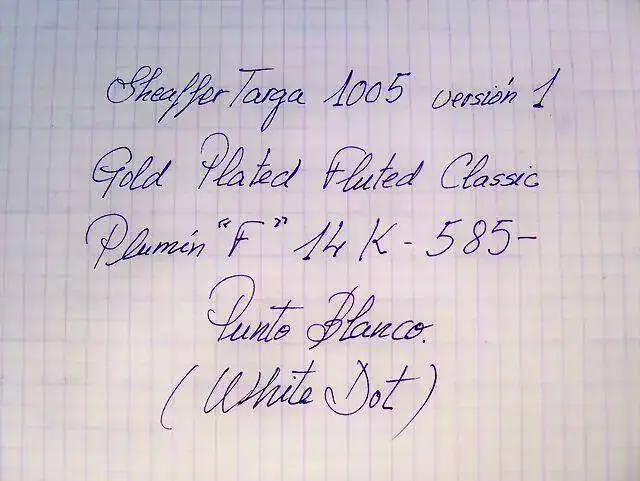 Sheaffer Targa 1005 versión 1
Gold Plated Fluted Classic
Plumín "F" 14 K - 585-
Punto Blanco.
(White Dot)